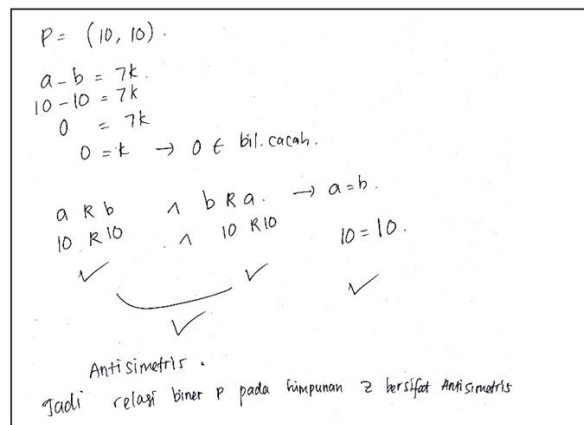 P = (10, 10).
a - b = 7k.
10 - 10 = 7k
0 = 7k
0 = k → 0 ∈ bil. cacah.
a R b ∧ b R a. → a = b.
10 R 10 ∧ 10 R 10 10 = 10.
✓ ✓ ✓
✓
Antisimetris.
Jadi relasi biner P pada himpunan Z bersifat Antisimetris